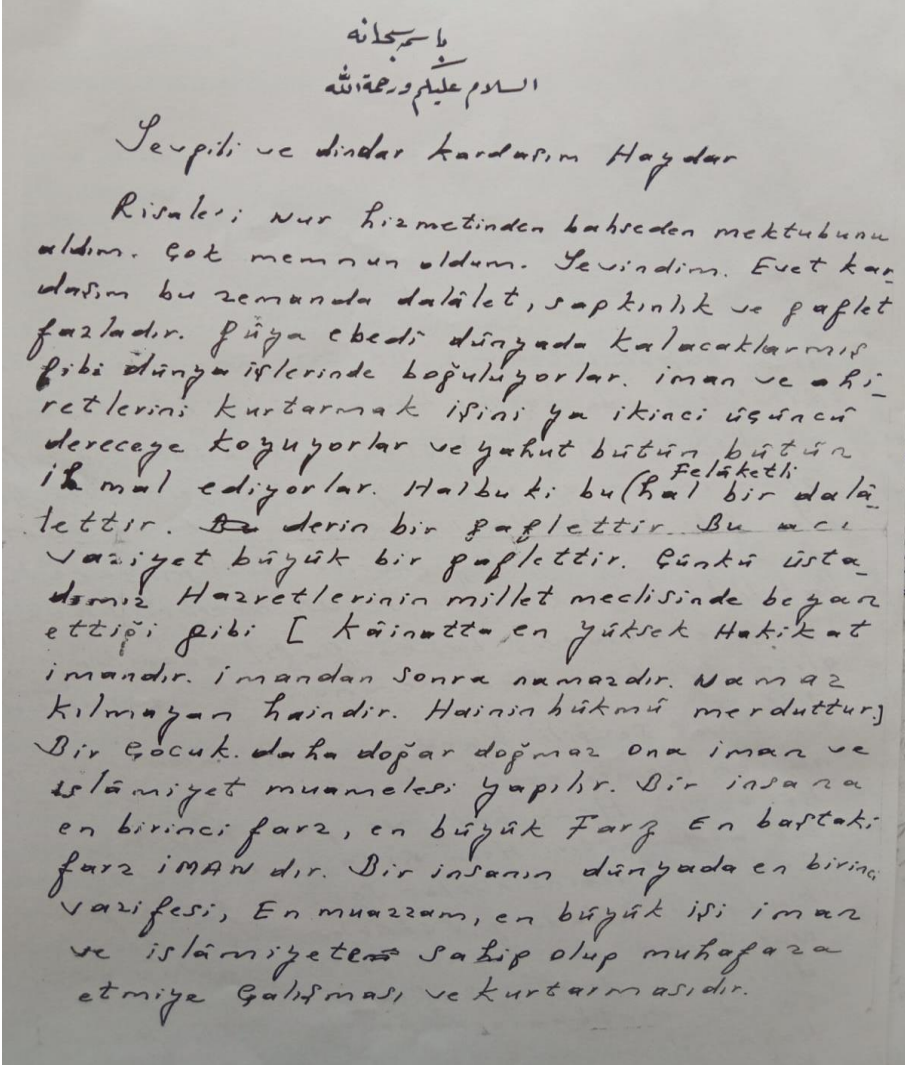 باسمه سبحانه
السلام عليكم ورحمة الله
Sevgili ve dindar kardaşım Haydar
Risale-i Nur hizmetinden bahseden mektubunu
aldım. Çok memnun oldum. Sevindim. Evet kar-
daşım bu zemanda dalâlet, sapkınlık ve gaflet
fazladır. Gûya ebedî dünyada kalacaklarmış
gibi dünya işlerinde boğuluyorlar. iman ve ahi-
retlerini kurtarmak işini ya ikinci üçüncü
dereceye koyuyorlar ve yahut bütün bütün
ihmal ediyorlar. Halbuki bu (hal bir dalâ-
Felâketli
lettir. derin bir gaflettir. Bu acı
vaziyet büyük bir gaflettir. Çünkü üsta-
dımız Hazretlerinin millet meclisinde beyan
ettiği gibi [ Kâinatta en yüksek Hakikat
imandır. imandan sonra namazdır. Namaz
kılmayan haindir. Hainin hükmü merduttur.]
Bir Çocuk daha doğar doğmaz ona iman ve
islâmiyet muamelesi yapılır. Bir insana
en birinci farz, en büyük Farz En baştaki
farz iMAN dır. Bir insanın dünyada en birinci
vazifesi, En muazzam, en büyük işi iman
ve islâmiyete sahip olup muhafaza
etmiye Çalışması ve kurtarmasıdır.